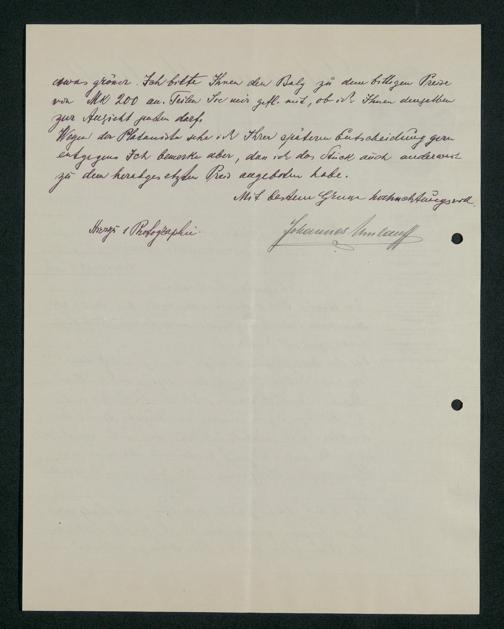 etwas grösser. Ich biete Ihnen den Balg zu dem billigen Preise
von Mk 200 an. Teilen Sie mir gefl. mit, ob ich Ihnen denselben
zur Ansicht senden darf.
Wegen der Platanista sehe ich Ihrer späteren Entscheidung gern
entgegen. Ich bemerke aber, dass ich das Stück auch anderweit
zu dem herabgesetzten Preis angeboten habe.
Mit bestem Grusse hochachtungsvoll
Hierzu 1 Photographie
Johannes Umlauff